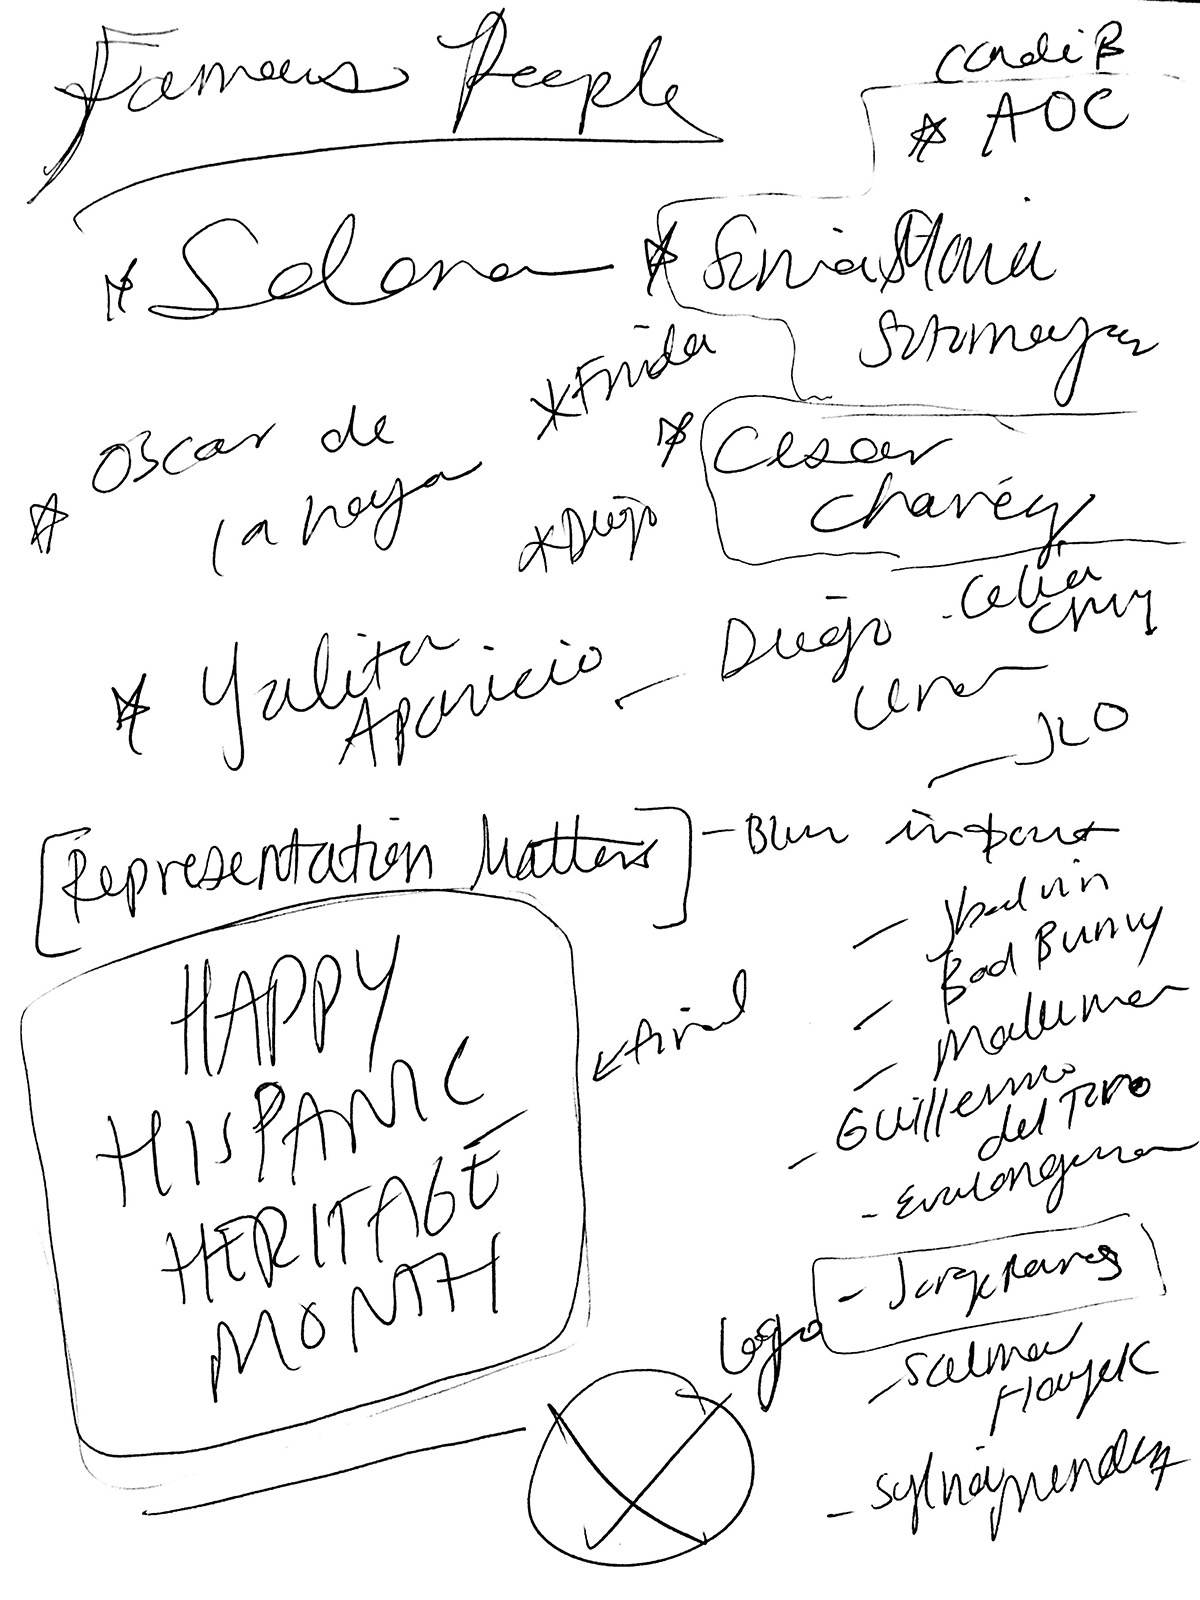 Famous People
Cardi B
* AOC
* Selena
* Sonia Maria
Sotomayor
* Frida
* Oscar de
la hoya
* Cesar
Chavez
* Diego
- Celia
Cruz
* Yalitza
Aparicio
- Diego
Luna
- JLO
[Representation Matters]
- Bad Bunny
- Maluma
- Guillermo
del Toro
- Eva Longoria
- Jorge Ramos
- Salma
Hayek
- Sylvia Mendez
HAPPY
HISPANIC
HERITAGE
MONTH
← final
Logo